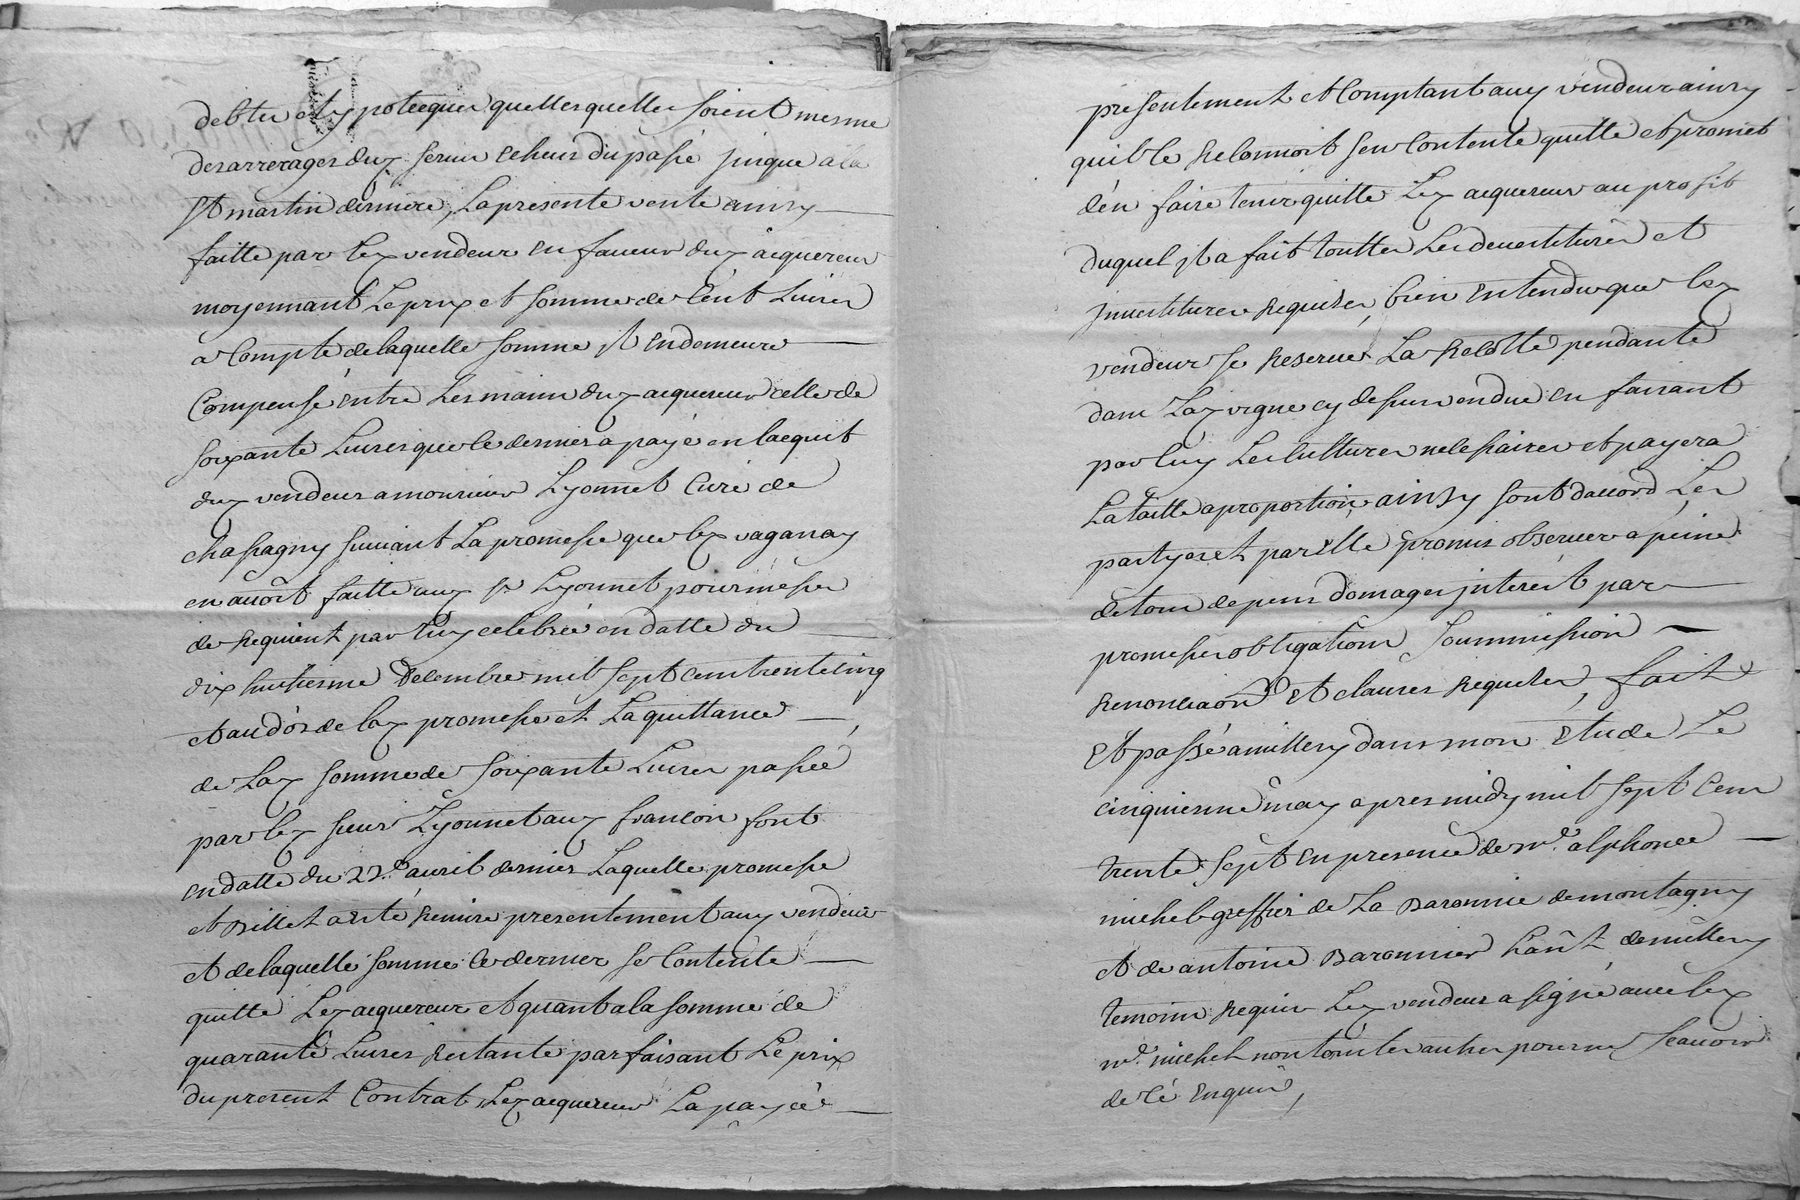 debtes et ypotecques quelles quelles soient mesme
des arrerages duz servis echeus du passé jusque a la
St martin derniere, La presente vente ainsy
faitte par lez vendeur en faveur duz acquereur
moyennant Le prix et somme de Cent Livres
a Compte de laquelle somme il en demeure
Compensé entre Les mains duz acquereur celle de
soixante Livres que le dernier a payé en lacquit
duz vendeur a monsieur Lyonnet Curé de
chassagny suivant La promesse que lez vaganay
en avoit faitte auz sr Lyonnet pour messes
de requient par luy celebrée en datte du
dix huitiesme decembre mil sept cens trente cinq
et au dos de laz promesse et La quittance
de Laz somme de soixante Livres passée
par lez sieur Lyonnet auz francon sont
en datte du 22e avril dernier Laquelle promesse
et Billet a esté remise presentement auz vendeur
et de laquelle somme ce dernier se Contente
quitte Lez acquereur et quant a la somme de
quarante Livres restante parfaisant Le prix
du present Contrat Lez acquereur La payée
presentement et Comptant auz vendeur ainsy
quil le reconnoit sen Contente quitte et promet
d'en faire tenir quitte Lez acquereur au profit
duquel il a fait touttes Les devestitures et
investitures requises, bien entendu que lez
vendeur se reserve La recolte pendante
dans Laz vigne cy dessus vendue en faisant
par luy Les cultures necessaires et payera
La taille a proportion ainsy sont daccord Les
partyes et par Elle promis observer a peine
de tous depens domages interest par
promesses obligations Soummission
renonciaôn Et clauses requises, fait
Et passé a millery dans mon Etude Le
cinquiesme may apres midy mil sept Cens
trente sept en presence de me. alphonce
michel greffier de La Baronnie de montagny
et de antoine Baronnier hant. de millery
temoins requis Lez vendeur a signé avec lez
me. michel non tous les autres pour ne scavoir
de ce enquis,